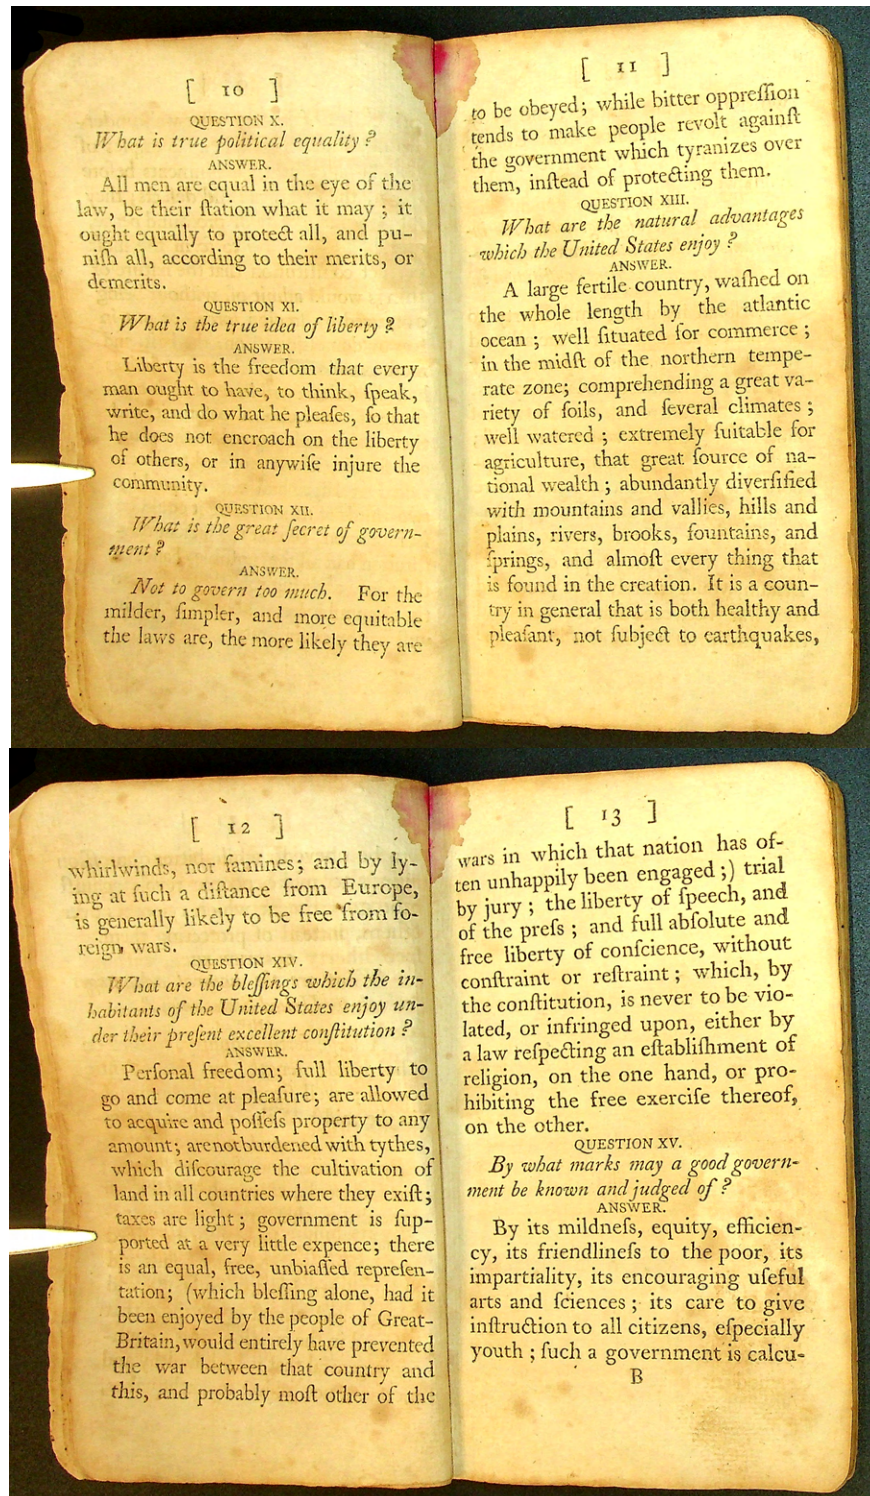 [ 10 ]
QUESTION X.
What is true political equality ?
ANSWER.
All men are equal in the eye of the
law, be their ſtation what it may ; it
ought equally to protect all, and pu-
niſh all, according to their merits, or
demerits.
QUESTION XI.
What is the true idea of liberty ?
ANSWER.
Liberty is the freedom that every
man ought to have, to think, ſpeak,
write, and do what he pleaſes, ſo that
he does not encroach on the liberty
of others, or in anywiſe injure the
community.
QUESTION XII.
What is the great ſecret of govern-
ment ?
ANSWER.
Not to govern too much. For the
milder, ſimpler, and more equitable
the laws are, the more likely they are
[ 11 ]
to be obeyed; while bitter oppreſſion
tends to make people revolt againſt
the government which tyranizes over
them, inſtead of protecting them.
QUESTION XIII.
What are the natural advantages
which the United States enjoy ?
ANSWER.
A large fertile country, waſhed on
the whole length by the atlantic
ocean ; well ſituated for commerce ;
in the midſt of the northern tempe-
rate zone; comprehending a great va-
riety of ſoils, and ſeveral climates ;
well watered ; extremely ſuitable for
agriculture, that great ſource of na-
tional wealth ; abundantly diverſified
with mountains and vallies, hills and
plains, rivers, brooks, fountains, and
ſprings, and almoſt every thing that
is found in the creation. It is a coun-
try in general that is both healthy and
pleaſant, not ſubject to earthquakes,
[ 12 ]
whirlwinds, nor famines; and by ly-
ing at ſuch a diſtance from Europe,
is generally likely to be free from fo-
reign wars.
QUESTION XIV.
What are the bleſſings which the in-
habitants of the United States enjoy un-
der their preſent excellent conſtitution ?
ANSWER.
Perſonal freedom; full liberty to
go and come at pleaſure; are allowed
to acquire and poſſeſs property to any
amount; are not burdened with tythes,
which diſcourage the cultivation of
land in all countries where they exiſt;
taxes are light ; government is ſup-
ported at a very little expence; there
is an equal, free, unbiaſſed repreſen-
tation; (which bleſſing alone, had it
been enjoyed by the people of Great-
Britain, would entirely have prevented
the war between that country and
this, and probably moſt other of the
[ 13 ]
wars in which that nation has of-
ten unhappily been engaged ;) trial
by jury ; the liberty of ſpeech, and
of the preſs ; and full abſolute and
free liberty of conſcience, without
conſtraint or reſtraint ; which, by
the conſtitution, is never to be vio-
lated, or infringed upon, either by
a law reſpecting an eſtabliſhment of
religion, on the one hand, or pro-
hibiting the free exerciſe thereof,
on the other.
QUESTION XV.
By what marks may a good govern-
ment be known and judged of ?
ANSWER.
By its mildneſs, equity, efficien-
cy, its friendlineſs to the poor, its
impartiality, its encouraging uſeful
arts and ſciences ; its care to give
inſtruction to all citizens, eſpecially
youth ; ſuch a government is calcu-
B